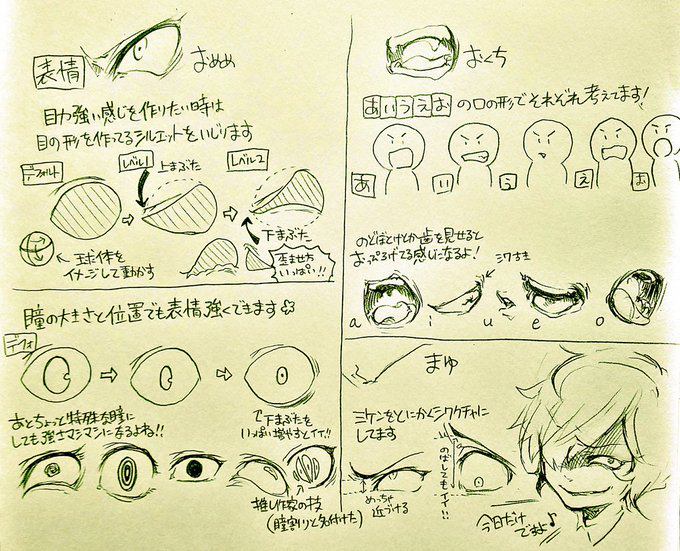 表情
おめめ
目力強い感じを作りたい時は
目の形を作ってるシルエットをいじります
デフォルト
レベル1
上まぶた
レベル2
下まぶた
球体を
イメージして動かす
歪ませ方
いっぱい!!
瞳の大きさと位置でも表情強くできます
デフォ
あとちょっと特殊な瞳に
しても強さマシマシになるよね!!
で下まぶたを
いっぱい増やすとイイ!!
推し作家の技
(瞳割りと名付けた)
おくち
あいうえおの口の形でそれぞれ考えてます!
あ
い
う
え
お
のどぼとけとか歯を見せると
おっぴろげてる感じになるよ!
シワとき
a
i
u
e
o
まゆ
ミケンをとにかくシワクチャに
してます
めっちゃ
近づける
のばしてもイイ!!
今日だけ
ですよ♪